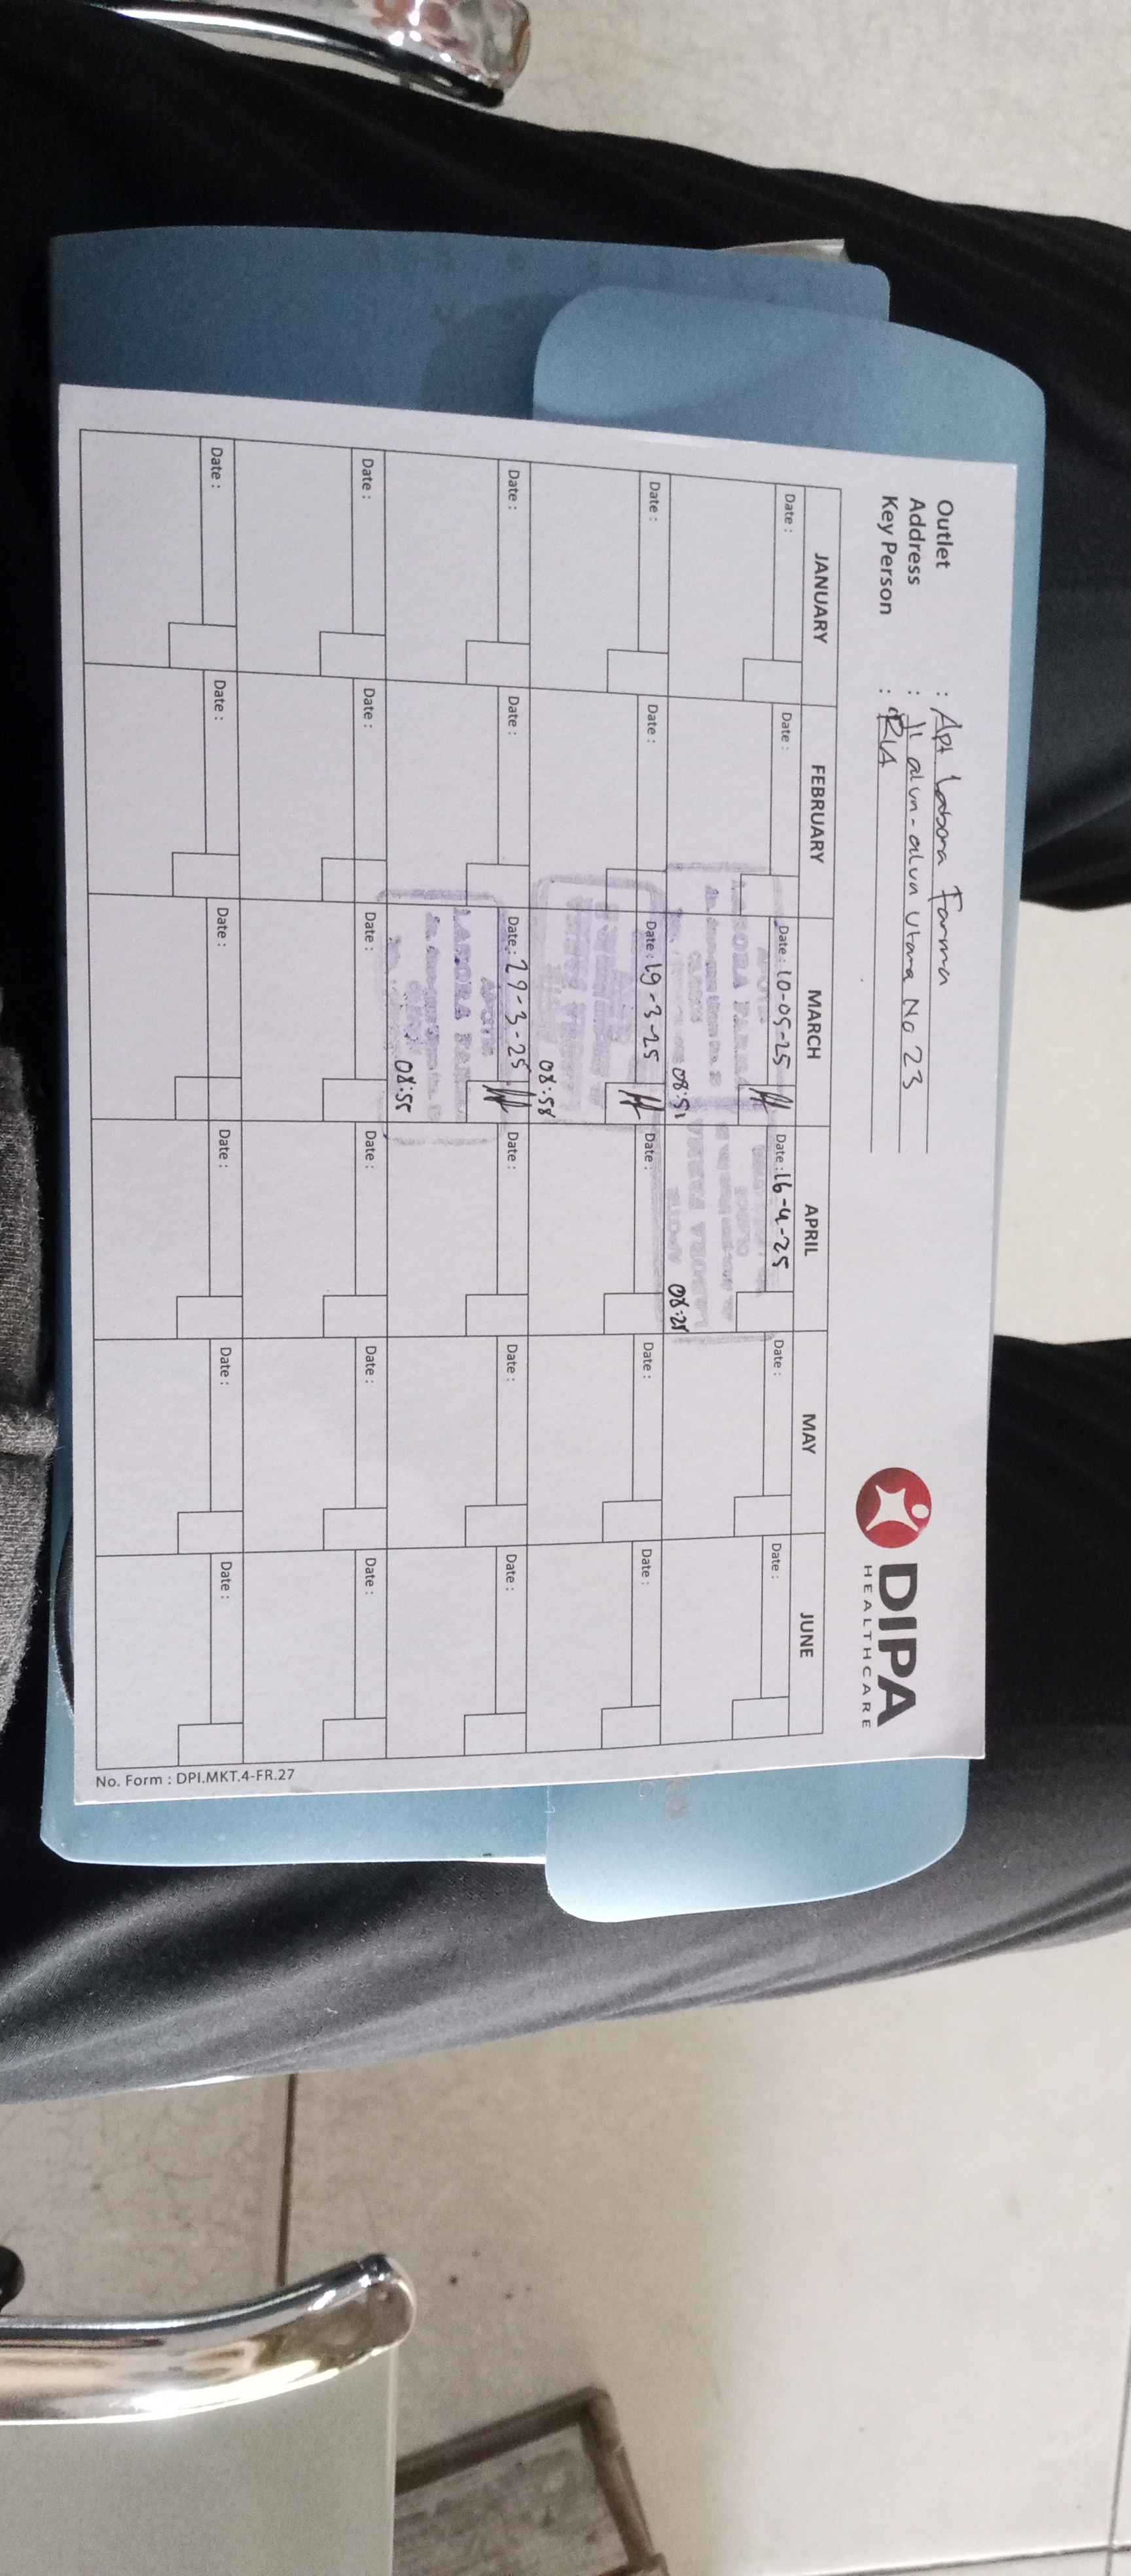 Outlet : Apt Labora Farma
Address : Jl alun-alun Utara No 23
Key Person : RIA
DIPA
HEALTHCARE
JANUARY FEBRUARY MARCH APRIL MAY JUNE
Date : Date : Date : 10-05-25 Date : 16-4-25 Date : Date :
08:51 08:25
Date : Date : Date : 19-3-25 Date : Date : Date :
08:58
Date : Date : Date : 29-3-25 Date : Date : Date :
LABORA
08:55
Date : Date : Date : Date : Date : Date :
Date : Date : Date : Date : Date : Date :
No. Form : DPI.MKT.4-FR.27